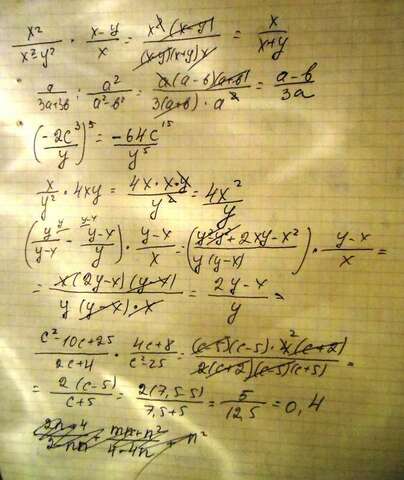 x²/(x²-y²) · (x-y)/x = x²(x-y)/((x-y)(x+y)x) = x/(x+y)
a/(3a+3b) : a²/(a²-b²) = a(a-b)(a+b)/(3(a+b)·a²) = (a-b)/3a
(-2c³/y)⁵ = -64c¹⁵/y⁵
x/y² · 4xy = 4x·x·y/y² = 4x²/y
(y^y/(y-x) - (y-x)^(y-x)/y) · (y-x)/x = ((y²-y²+2xy-x²)/(y(y-x))) · (y-x)/x =
= x(2y-x)(y-x)/(y(y-x)·x) = (2y-x)/y =
(c²-10c+25)/(2c+4) · (4c+8)/(c²-25) = (c-5)(c-5)·4²(c+2)/(2(c+2)(c-5)(c+5)) =
= 2(c-5)/(c+5) = 2(7,5-5)/(7,5+5) = 5/12,5 = 0,4